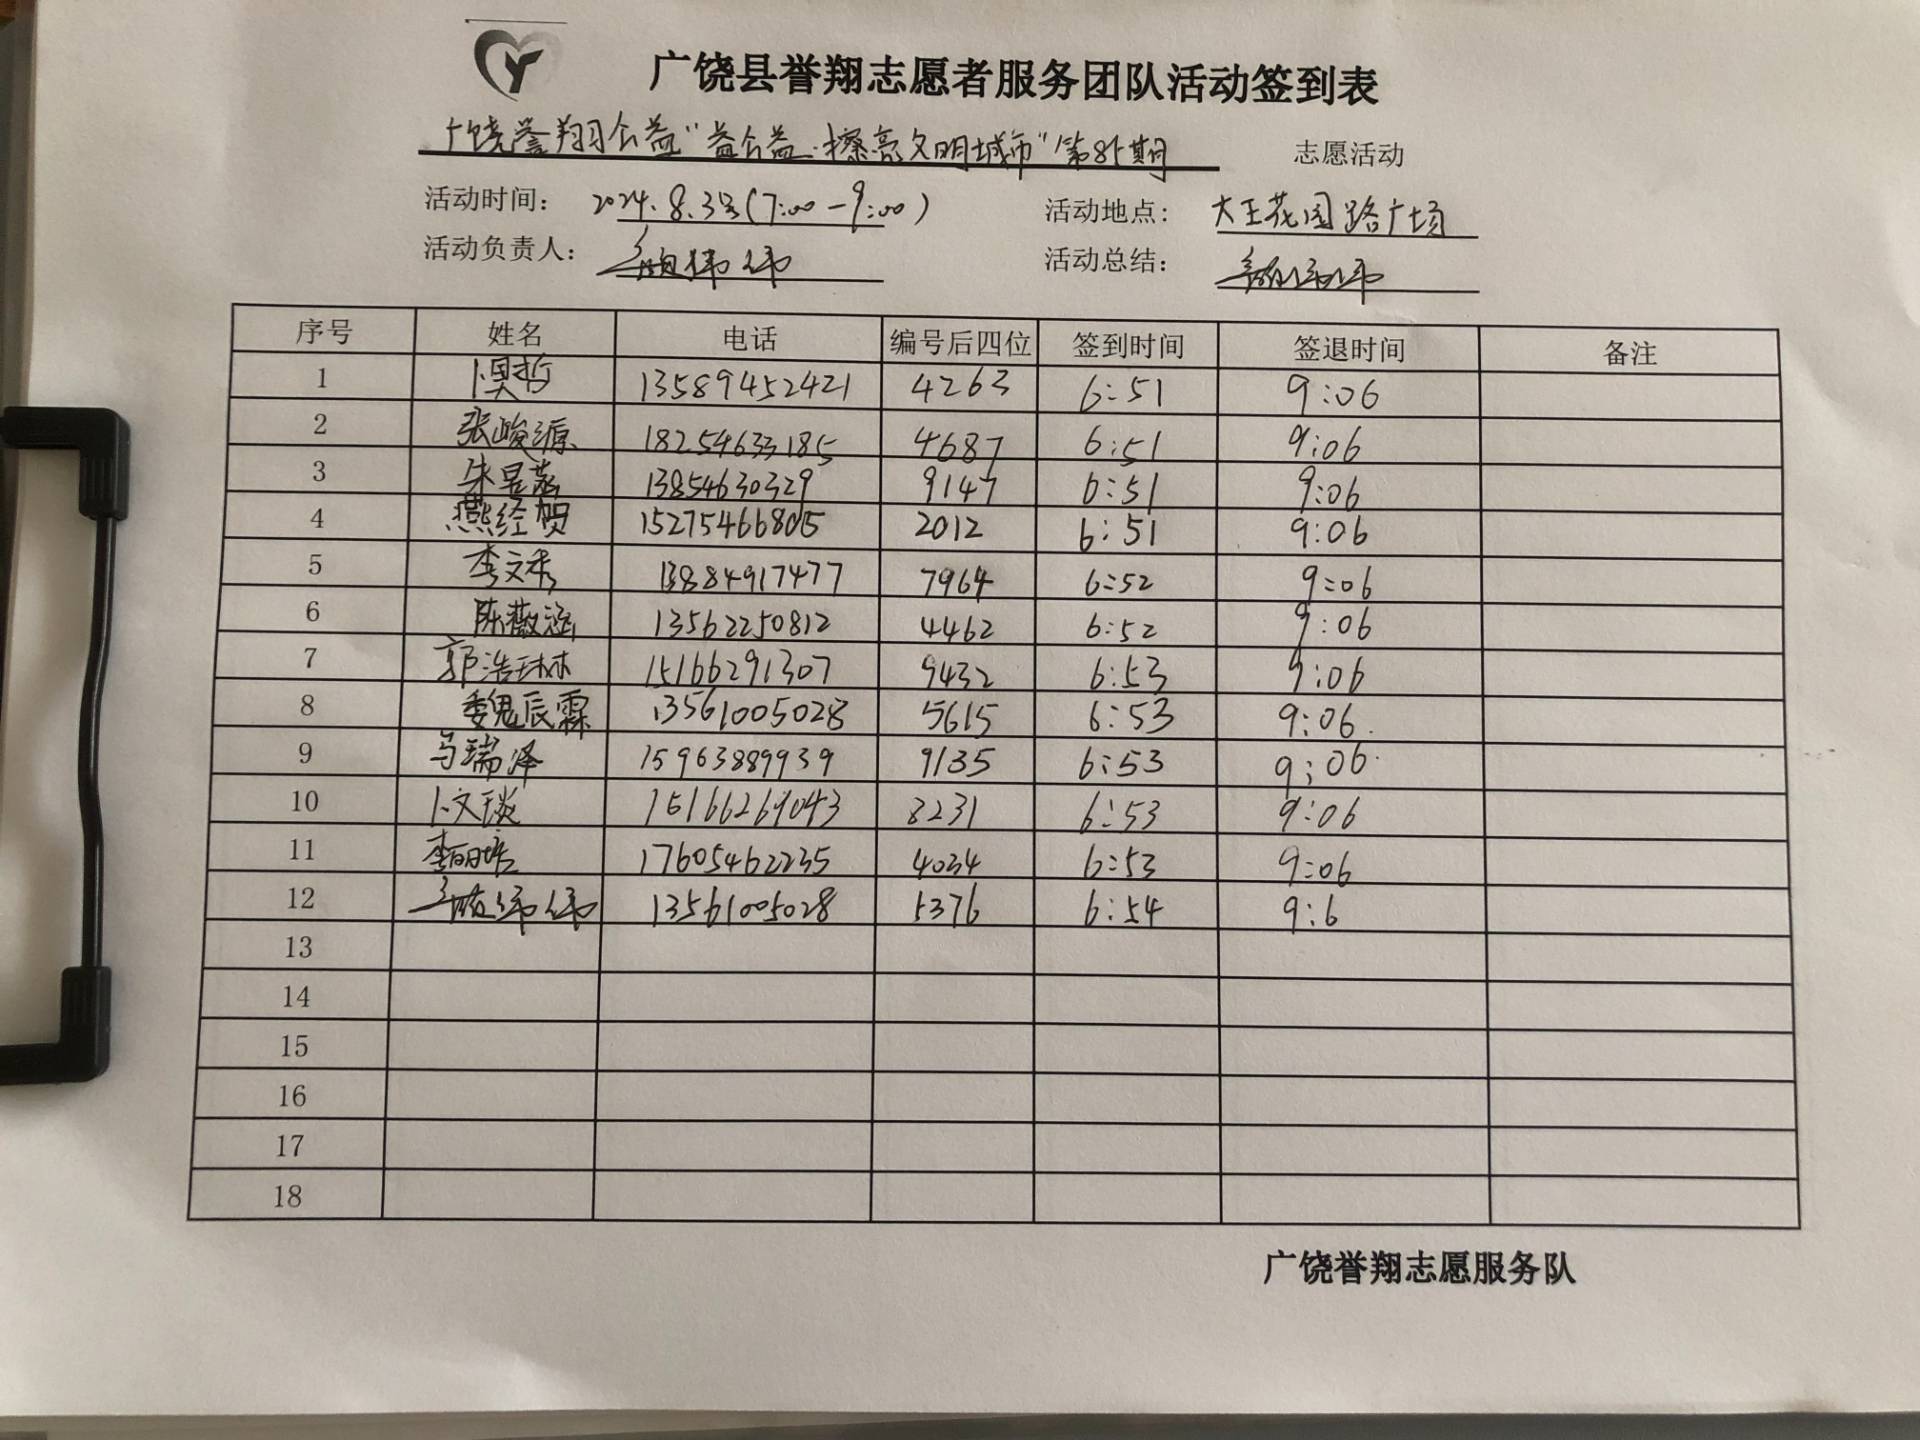 广饶县誉翔志愿者服务团队活动签到表
广饶誉翔公益"益公益·擦亮文明城市"第85期 志愿活动
活动时间： 2024.8.3号(7:00-9:00) 活动地点： 大王花园路广场
活动负责人： 活动总结：
序号 姓名 电话 编号后四位 签到时间 签退时间 备注
1 卜昊哲 13589452421 4263 6:51 9:06
2 张峻源 18254633185 4687 6:51 9:06
3 朱昱菡 13854630329 9147 6:51 9:06
4 燕经贺 15275466805 2012 6:51 9:06
5 李文秀 13884917477 7964 6:52 9:06
6 陈薇涵 13562250812 4462 6:52 9:06
7 郭浩琳 15166291307 9432 6:53 9:06
8 魏辰霖 13561005028 5615 6:53 9:06
9 马瑞泽 15963889939 9135 6:53 9:06
10 卜文琰 15166269043 8231 6:53 9:06
11 17605462235 4034 6:53 9:06
12 13561005028 5376 6:54 9:6
13
14
15
16
17
18
广饶誉翔志愿服务队